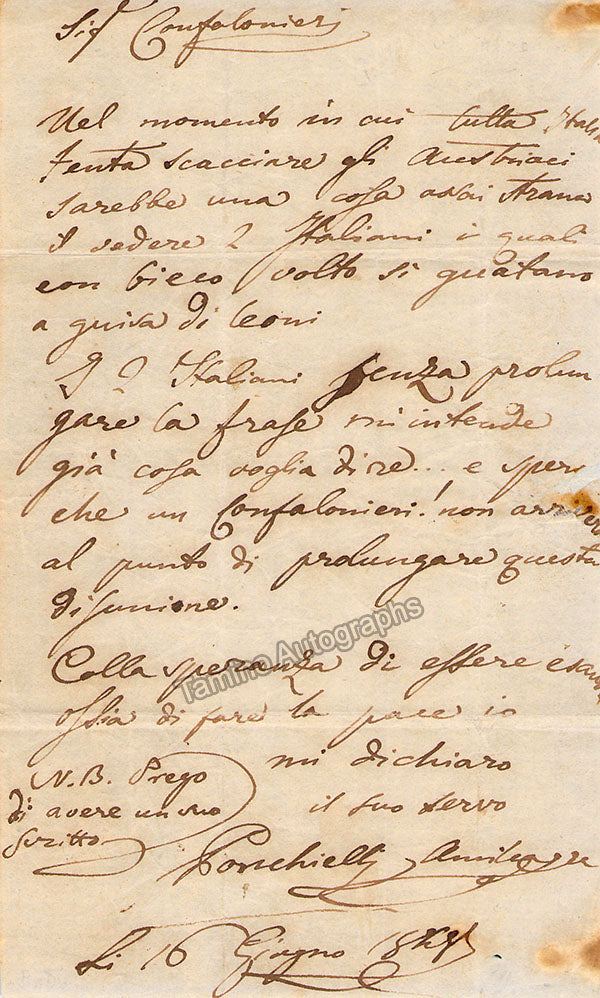 Sigr Confalonieri
Nel momento in cui tutta Italia
tenta scacciare gli Austriaci
sarebbe una cosa assai strana
il vedere 2 Italiani i quali
con bieco volto si guatano
a guisa di leoni
I 2 Italiani senza prolun
gare la frase mi intende
già cosa voglia dire... e spero
che un Confalonieri! non arriverà
al punto di prolungare questa
disunione.
Colla speranza di essere
ossia di fare la pace io
mi dichiaro
il suo servo
Ponchielli Amilcare
N.B. Prego
di avere un suo
scritto
Li 16 Giugno
Tamino Autographs